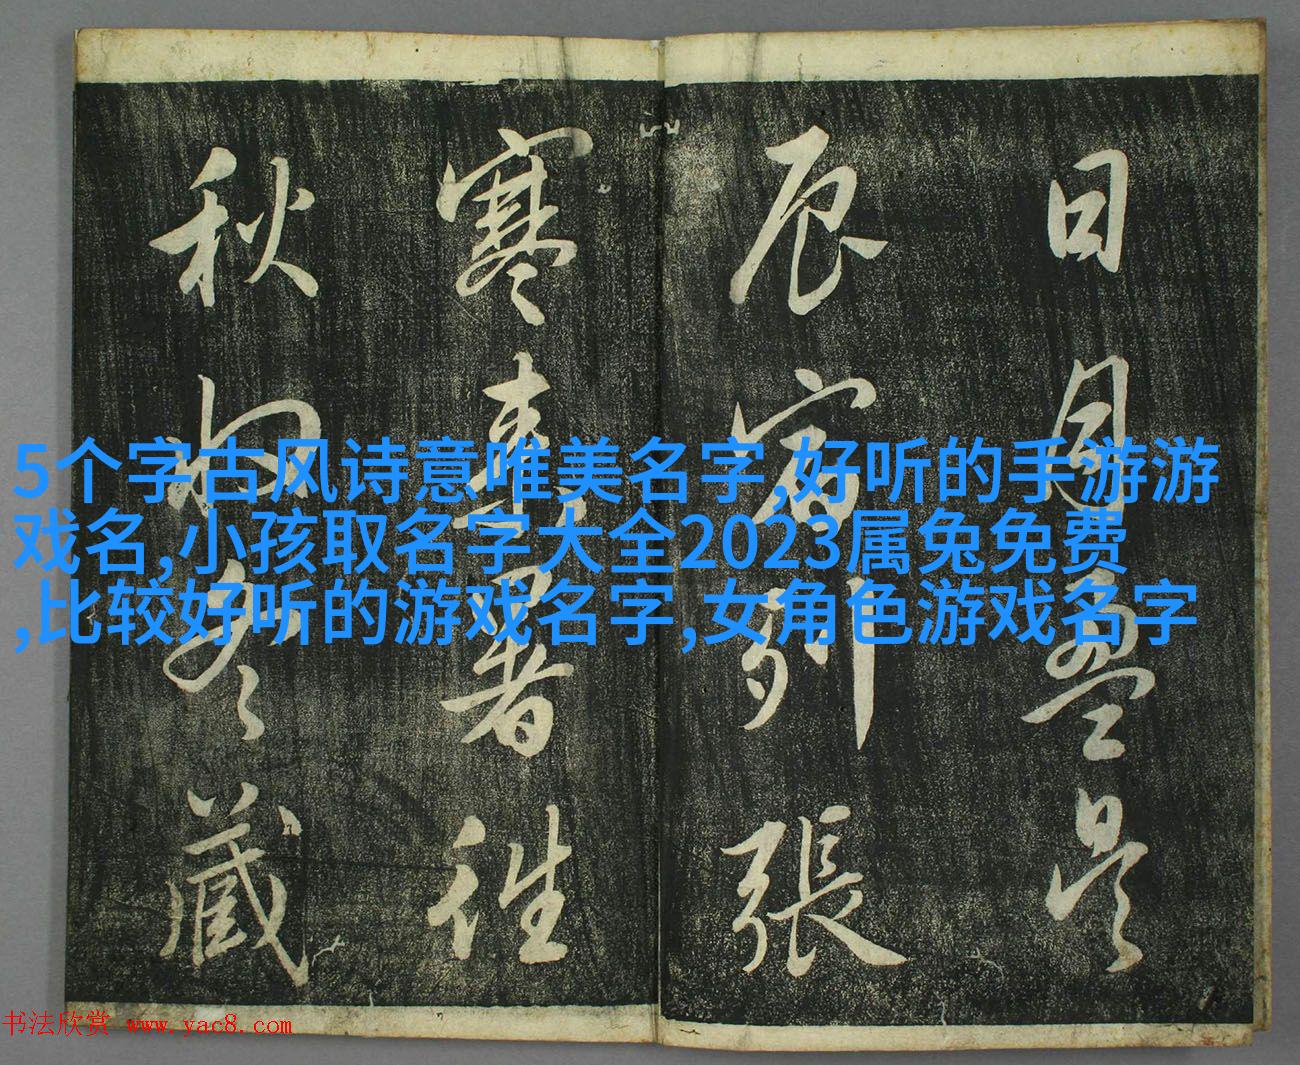 日月盈昃
辰宿列張
寒來暑往
秋收冬藏
5个字古风诗意唯美名字,好听的手游游
戏名,小孩取名字大全2023属兔免费
,比较好听的游戏名字,女角色游戏名字
书法欣赏 www.yac8.com